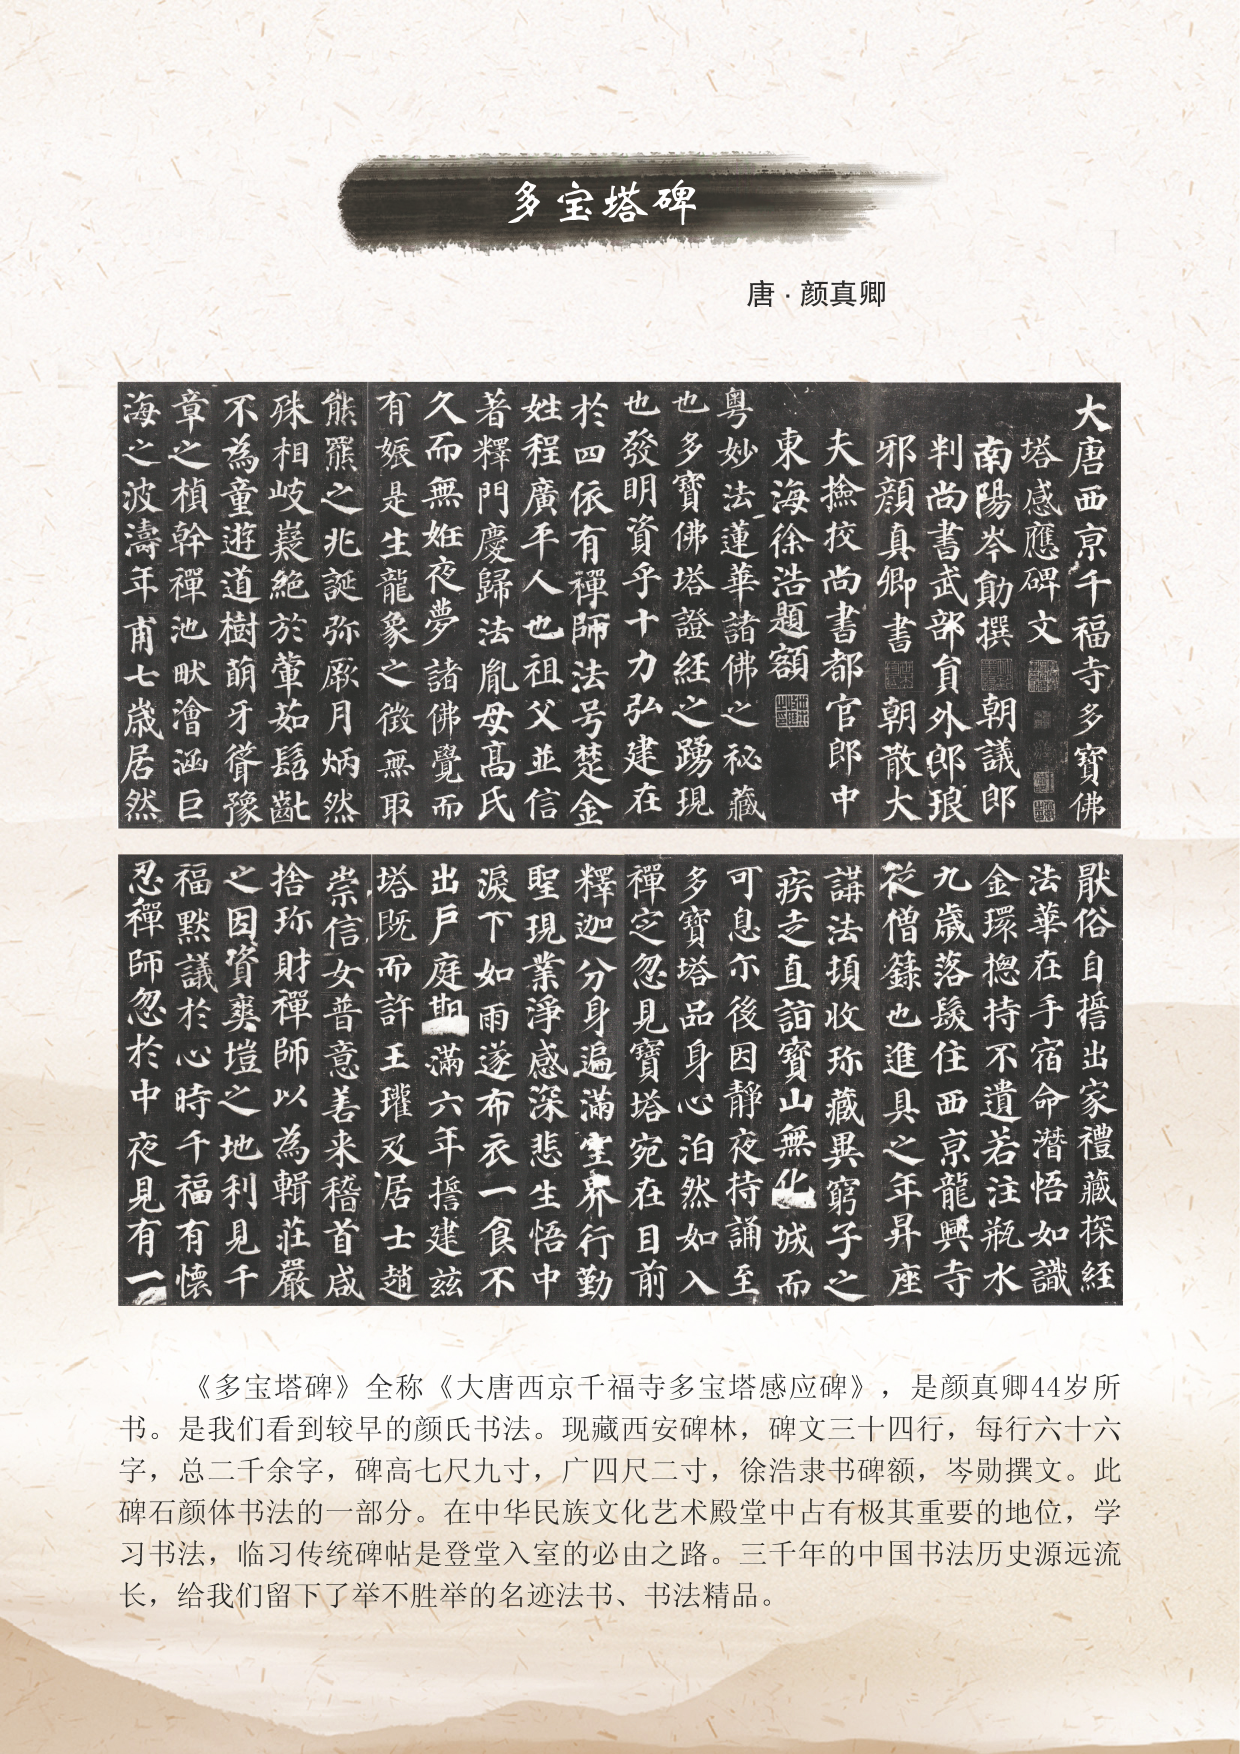 多宝塔碑
唐·颜真卿
大唐西京千福寺多寶佛
塔感應碑文
南陽岑勛撰 朝議郎
判尚書武部員外郎琅
邪顏真卿書 朝散大
夫撿挍尚書都官郎中
東海徐浩題額
粵妙法蓮華諸佛之秘藏
也多寶佛塔證経之踴現
也發明資乎十力弘建在
於四依有禪師法号楚金
姓程廣平人也祖父並信
著釋門慶歸法胤母高氏
久而無姙夜夢諸佛覺而
有娠是生龍象之徵無取
熊羆之兆誕弥厥月炳然
殊相岐嶷絕於葷茹髫齔
不為童遊道樹萌牙聳豫
章之楨幹禪池畎澮涵巨
海之波濤年甫七歲居然
猒俗自誓出家禮藏探経
法華在手宿命潛悟如識
金環揔持不遺若注瓶水
九歲落髮住西京龍興寺
從僧籙也進具之年昇座
講法頃收珎藏異窮子之
疾走直詣寶山無化城而
可息尓後因靜夜持誦至
多寶塔品身心泊然如入
禪定忽見寶塔宛在目前
釋迦分身遍滿空界行勤
聖現業淨感深悲生悟中
淚下如雨遂布衣一食不
出戶庭期滿六年誓建茲
塔既而許王瓘及居士趙
崇信女普意善来稽首咸
捨珎財禪師以為輯莊嚴
之因資爽塏之地利見千
福默議於心時千福有懷
忍禪師忽於中夜見有一
《多宝塔碑》全称《大唐西京千福寺多宝塔感应碑》，是颜真卿44岁所
书。是我们看到较早的颜氏书法。现藏西安碑林，碑文三十四行，每行六十六
字，总二千余字，碑高七尺九寸，广四尺二寸，徐浩隶书碑额，岑勋撰文。此
碑石颜体书法的一部分。在中华民族文化艺术殿堂中占有极其重要的地位，学
习书法，临习传统碑帖是登堂入室的必由之路。三千年的中国书法历史源远流
长，给我们留下了举不胜举的名迹法书、书法精品。